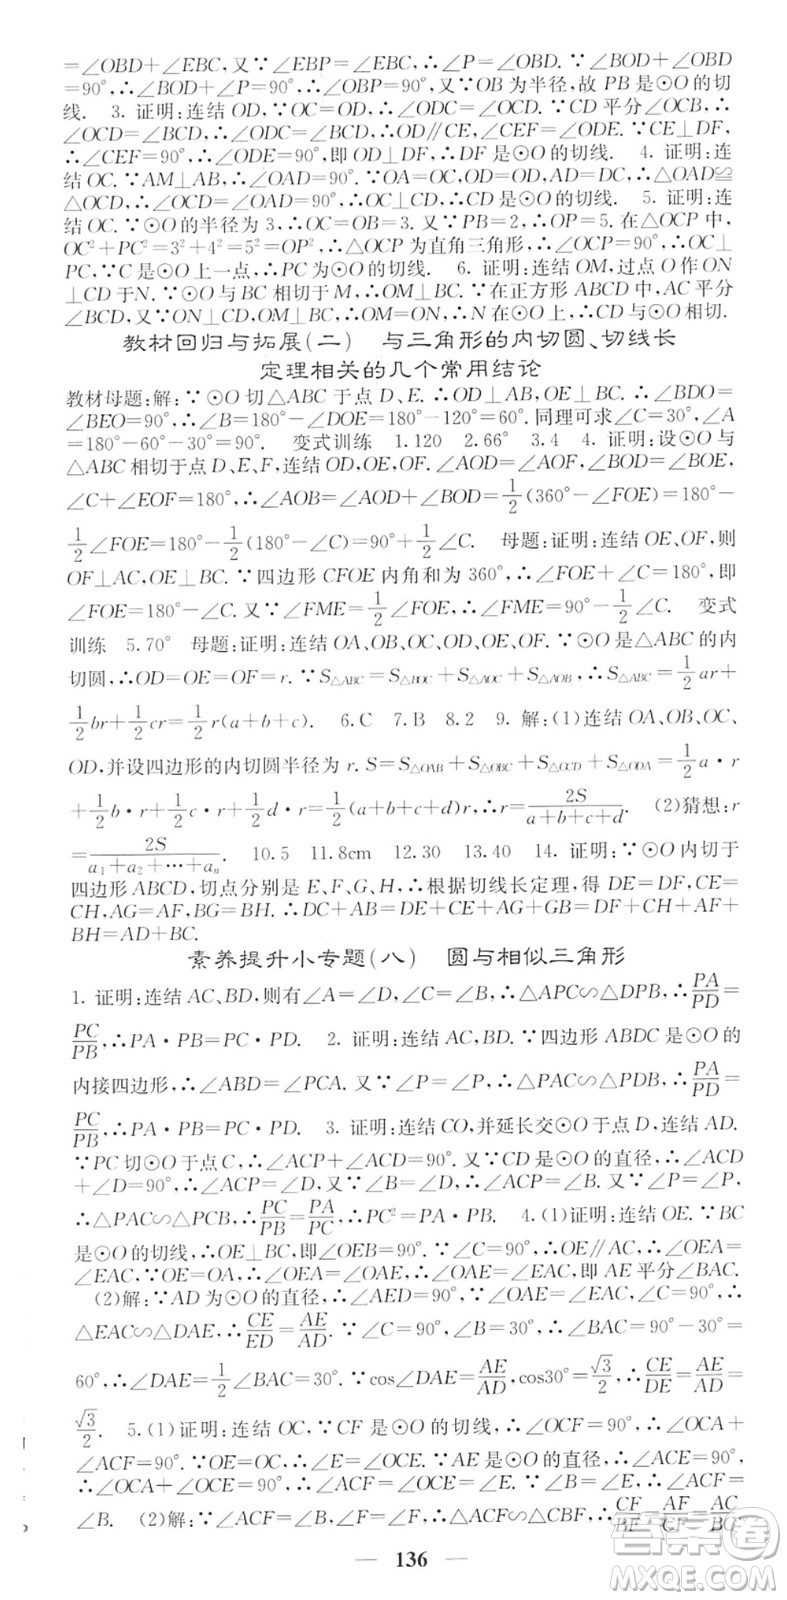 =∠OBD+∠EBC,又∵∠EBP=∠EBC,∴∠P=∠OBD.∵∠BOD+∠OBD
=90°,∴∠BOD+∠P=90°,∴∠OBP=90°.又∵OB为半径,故PB是⊙O的切
线. 3. 证明:连结OD,∵OC=OD,∴∠ODC=∠OCD.∵CD平分∠OCB,∴
∠OCD=∠BCD,∴∠ODC=∠BCD,∴OD∥CE,∠CEF=∠ODE.∵CE⊥DF,
∴∠CEF=90°,∴∠ODE=90°,即OD⊥DF,∴DF是⊙O的切线. 4. 证明:连
结OC.∵AM⊥AB,∴∠OAD=90°.∵OA=OC,OD=OD,AD=DC,∴△OAD≌
△OCD,∴∠OCD=∠OAD=90°,∴OC⊥CD,∴CD是⊙O的切线. 5. 证明:连结
OC.∵⊙O的半径为3,∴OC=OB=3.又∵PB=2,∴OP=5.在△OCP中,
OC²+PC²=3²+4²=5²=OP²,∴△OCP为直角三角形,∠OCP=90°,∴OC⊥
PC,∵C是⊙O上一点,∴PC为⊙O的切线. 6. 证明:连结OM,过点O作ON
⊥CD于N.∵⊙O与BC相切于M,∴OM⊥BC.∵在正方形ABCD中,AC平分
∠BCD,OM⊥BC,ON⊥CD,∴OM=ON,∴CD与⊙O相切.
教材回归与拓展(二) 与三角形的内切圆、切线长
定理相关的几个常用结论
教材母题:解:∵⊙O切△ABC于点D、E.∴OD⊥AB,OE⊥BC.∴∠BDO=
∠BEO=90°,∴∠B=180°-∠DOE=180°-120°=60°.同理可求∠C=30°,∠A
=180°-60°-30°=90°. 变式训练 1.120 2.66° 3.4 4. 证明:设⊙O与
△ABC相切于点D、E、F,连结OD,OE,OF.∠AOD=∠AOF,∠BOD=∠BOE,
∠C+∠EOF=180°,∴∠AOB=∠AOD+∠BOD=1/2(360°-∠FOE)=180°-
1/2∠FOE=180°-1/2(180°-∠C)=90°+1/2∠C. 母题:证明:连结OE,OF,则
OF⊥AC,OE⊥BC.∵四边形CFOE内角和为360°,∴∠FOE+∠C=180°,即
∠FOE=180°-∠C.又∵∠FME=1/2∠FOE,∴∠FME=90°-1/2∠C. 变式
训练 5.70° 母题:证明:连结OA、OB、OC、OD、OE、OF.∵⊙O是△ABC的内
切圆,∴OD=OE=OF=r.∵S△ABC=S△BOC+S△AOC+S△AOB,∴S△ABC=1/2ar+
1/2br+1/2cr=1/2r(a+b+c). 6.C 7.B 8.2 9. 解:(1)连结OA、OB、OC、
OD,并设四边形的内切圆半径为r.S=S△OAB+S△OBC+S△OCD+S△ODA=1/2a·r
+1/2b·r+1/2c·r+1/2d·r=1/2(a+b+c+d)r,∴r=2S/(a+b+c+d). (2)猜想:r
=2S/(a₁+a₂+…+aₙ). 10.5 11.8cm 12.30 13.40 14. 证明:∵⊙O内切于
四边形ABCD,切点分别是E、F、G、H,∴根据切线长定理,得DE=DF,CE=
CH,AG=AF,BG=BH.∴DC+AB=DE+CE+AG+BG=DF+CH+AF+
BH=AD+BC.
素养提升小专题(八) 圆与相似三角形
1. 证明:连结AC、BD,则有∠A=∠D,∠C=∠B,∴△APC∽△DPB,∴PA/PD=
PC/PB,∴PA·PB=PC·PD. 2. 证明:连结AC,BD.∵四边形ABDC是⊙O的
内接四边形,∴∠ABD=∠PCA.又∵∠P=∠P,∴△PAC∽△PDB,∴PA/PD=
PC/PB,∴PA·PB=PC·PD. 3. 证明:连结CO,并延长交⊙O于点D,连结AD.
∵PC切⊙O于点C,∴∠ACP+∠ACD=90°.∵CD是⊙O的直径,∴∠ACD
+∠D=90°,∴∠ACP=∠D.∵∠D=∠B,∴∠ACP=∠B.又∵∠P=∠P,
∴△PAC∽△PCB,∴PC/PB=PA/PC,∴PC²=PA·PB. 4.(1)证明:连结OE.∵BC
是⊙O的切线,∴OE⊥BC,即∠OEB=90°.∵∠C=90°,∴OE∥AC,∴∠OEA=
∠EAC,∵OE=OA,∴∠OEA=∠OAE,∴∠OAE=∠EAC,即AE平分∠BAC.
(2)解:∵AD为⊙O的直径,∴∠AED=90°,∵∠OAE=∠EAC,∠C=90°,∴
△EAC∽△DAE,∴CE/ED=AE/AD.∵∠C=90°,∠B=30°,∴∠BAC=90°-30°=
60°,∴∠DAE=1/2∠BAC=30°.∵cos∠DAE=AE/AD,cos30°=√3/2,∴CE/DE=AE/AD=
√3/2. 5.(1)证明:连结OC,∵CF是⊙O的切线,∴∠OCF=90°,∴∠OCA+
∠ACF=90°.∵OE=OC,∴∠E=∠OCE.∵AE是⊙O的直径,∴∠ACE=90°,
∴∠OCA+∠OCE=90°,∴∠ACF=∠OCE=∠E.∵∠B=∠E,∴∠ACF=
∠B. (2)解:∵∠ACF=∠B,∠F=∠F,∴△ACF∽△CBF,∴CF/BF=AF/CF=AC/BC
136
答案圈
MXQE.COM